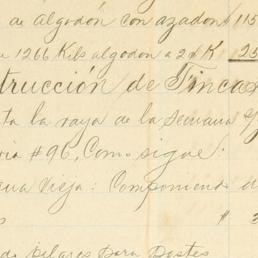 de algodón con azadon 115
e 1266 Kils algodon a 2¢ K 25
trucción de Finca
ta la raya de la Semana
ria #96, Como sigue:
ana Vieja: Componiendo d
o $ 3
de Pilares para Postes